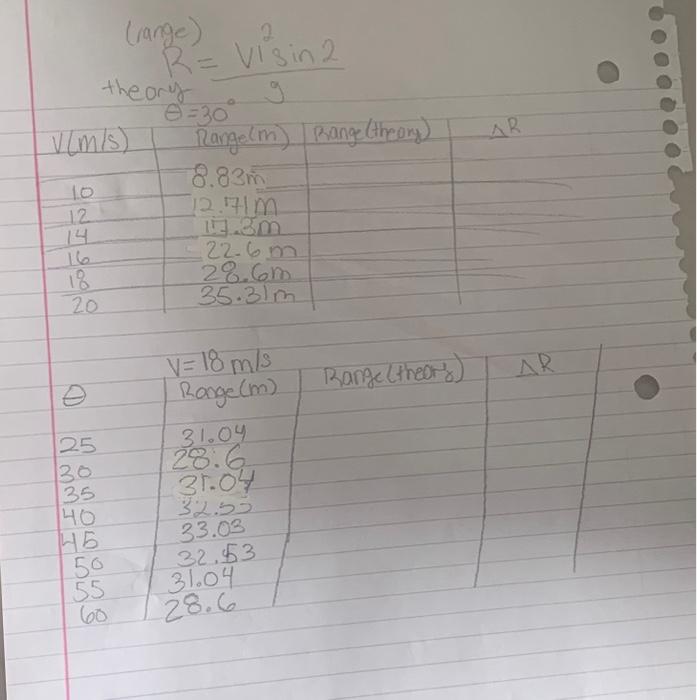 (range)
R = Vi² sin 2
g
theory
θ = 30°
V(m/s) Range(m) Range(theory) ΔR
10 8.83m
12 12.71m
14 17.3m
16 22.6 m
18 28.6m
20 35.31m
V = 18 m/s
θ Range(m) Range(theory) ΔR
25 31.04
30 28.6
35 31.04
40
45 33.03
50 32.53
55 31.04
60 28.6